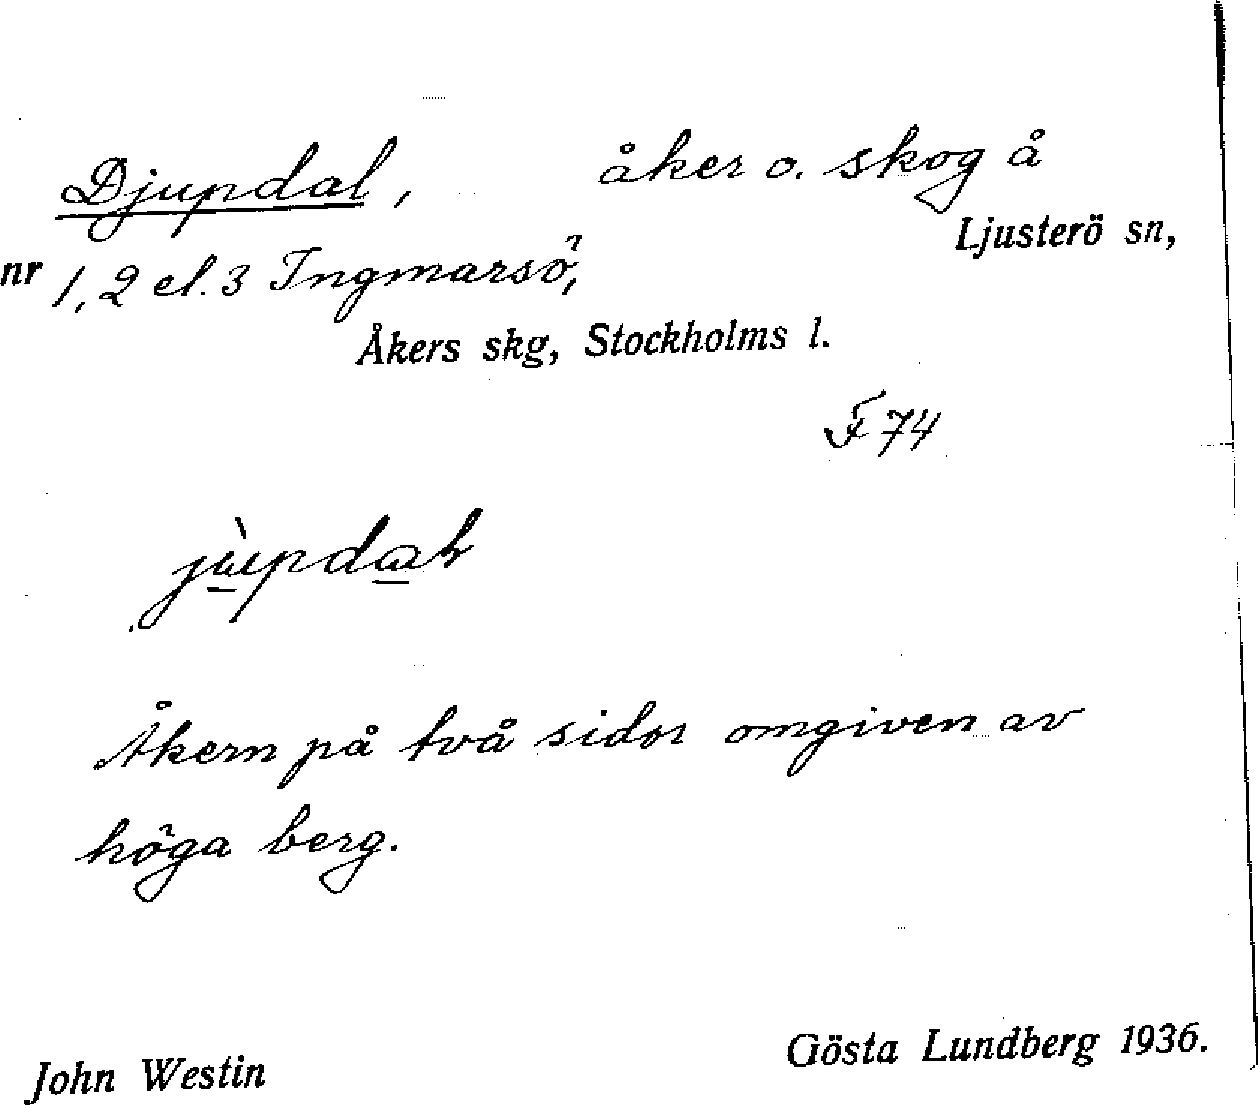 Djupdal, åker o. skog å
Ljusterö sn,
nr 1, 2 el. 3 Ingmarsö,
Åkers skg, Stockholms l.
F 74
jùpdal
Åkern på två sidor omgiven av
höga berg.
John Westin Gösta Lundberg 1936.